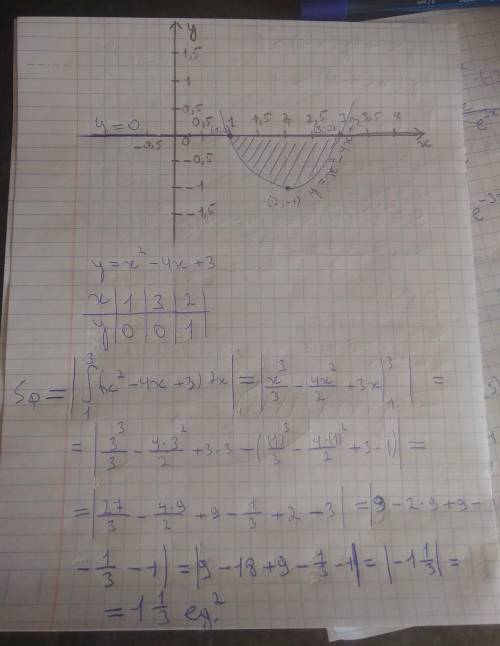 y
1,5
1
0,5
y = 0
-0,5 0 0,5 1 1,5 2 2,5 3 3,5 4 x
-0,5
-1
-1,5
(2;-1)
y = x² - 4x + 3
y = x² - 4x + 3
x | 1 | 3 | 2 |
y | 0 | 0 | 1 |
Sф = |∫₁³ (x² - 4x + 3) dx| = |x³/3 - 4x²/2 + 3x |₁³| =
= |3³/3 - 4·3²/2 + 3·3 - ((1)³/3 - 4·(1)²/2 + 3·1)| =
= |27/3 - 4·9/2 + 9 - 1/3 + 2 - 3| = |9 - 2·9 + 9 -
- 1/3 - 1| = |9 - 18 + 9 - 1/3 - 1| = |-1 1/3| =
= 1 1/3 ед.²